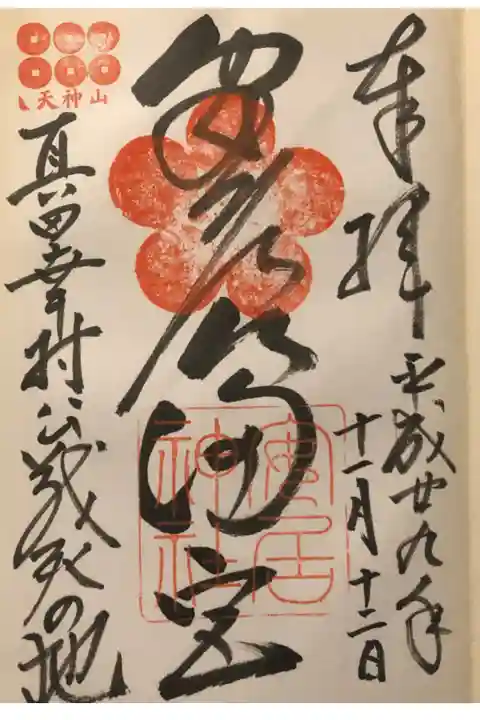 奉拝
平成廿九年
十一月十二日
安居天満宮
安居神社
天神山
真田幸村公戦死の地